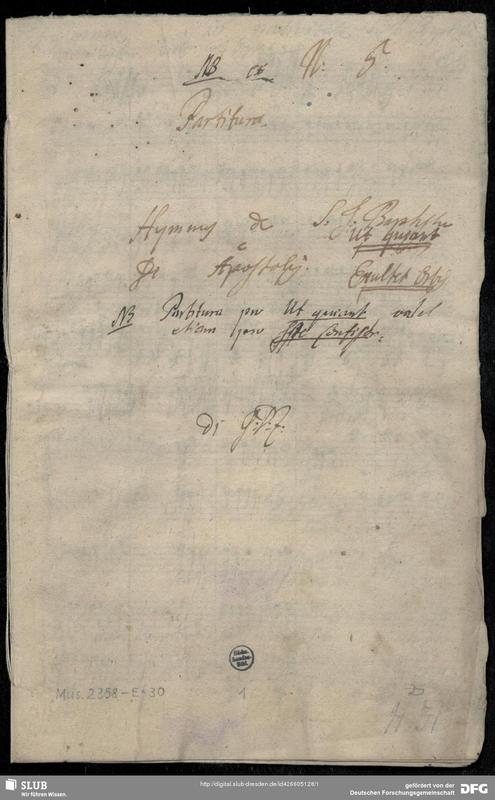 NB N: 5.
Partitura
Hymnus de S. J. Baptista
Ut queant
De Apostolis. Exultet Orbis
NB Partitura pro Ut queant valet
etiam pro Iste Confesor:
di G:D:Z:
Sächs.
Landes-
Bibl.
Mus. 2358-E-30 1
SLUB
Wir führen Wissen.
http://digital.slub-dresden.de/id426605128/1
gefördert von der
Deutschen Forschungsgemeinschaft DFG